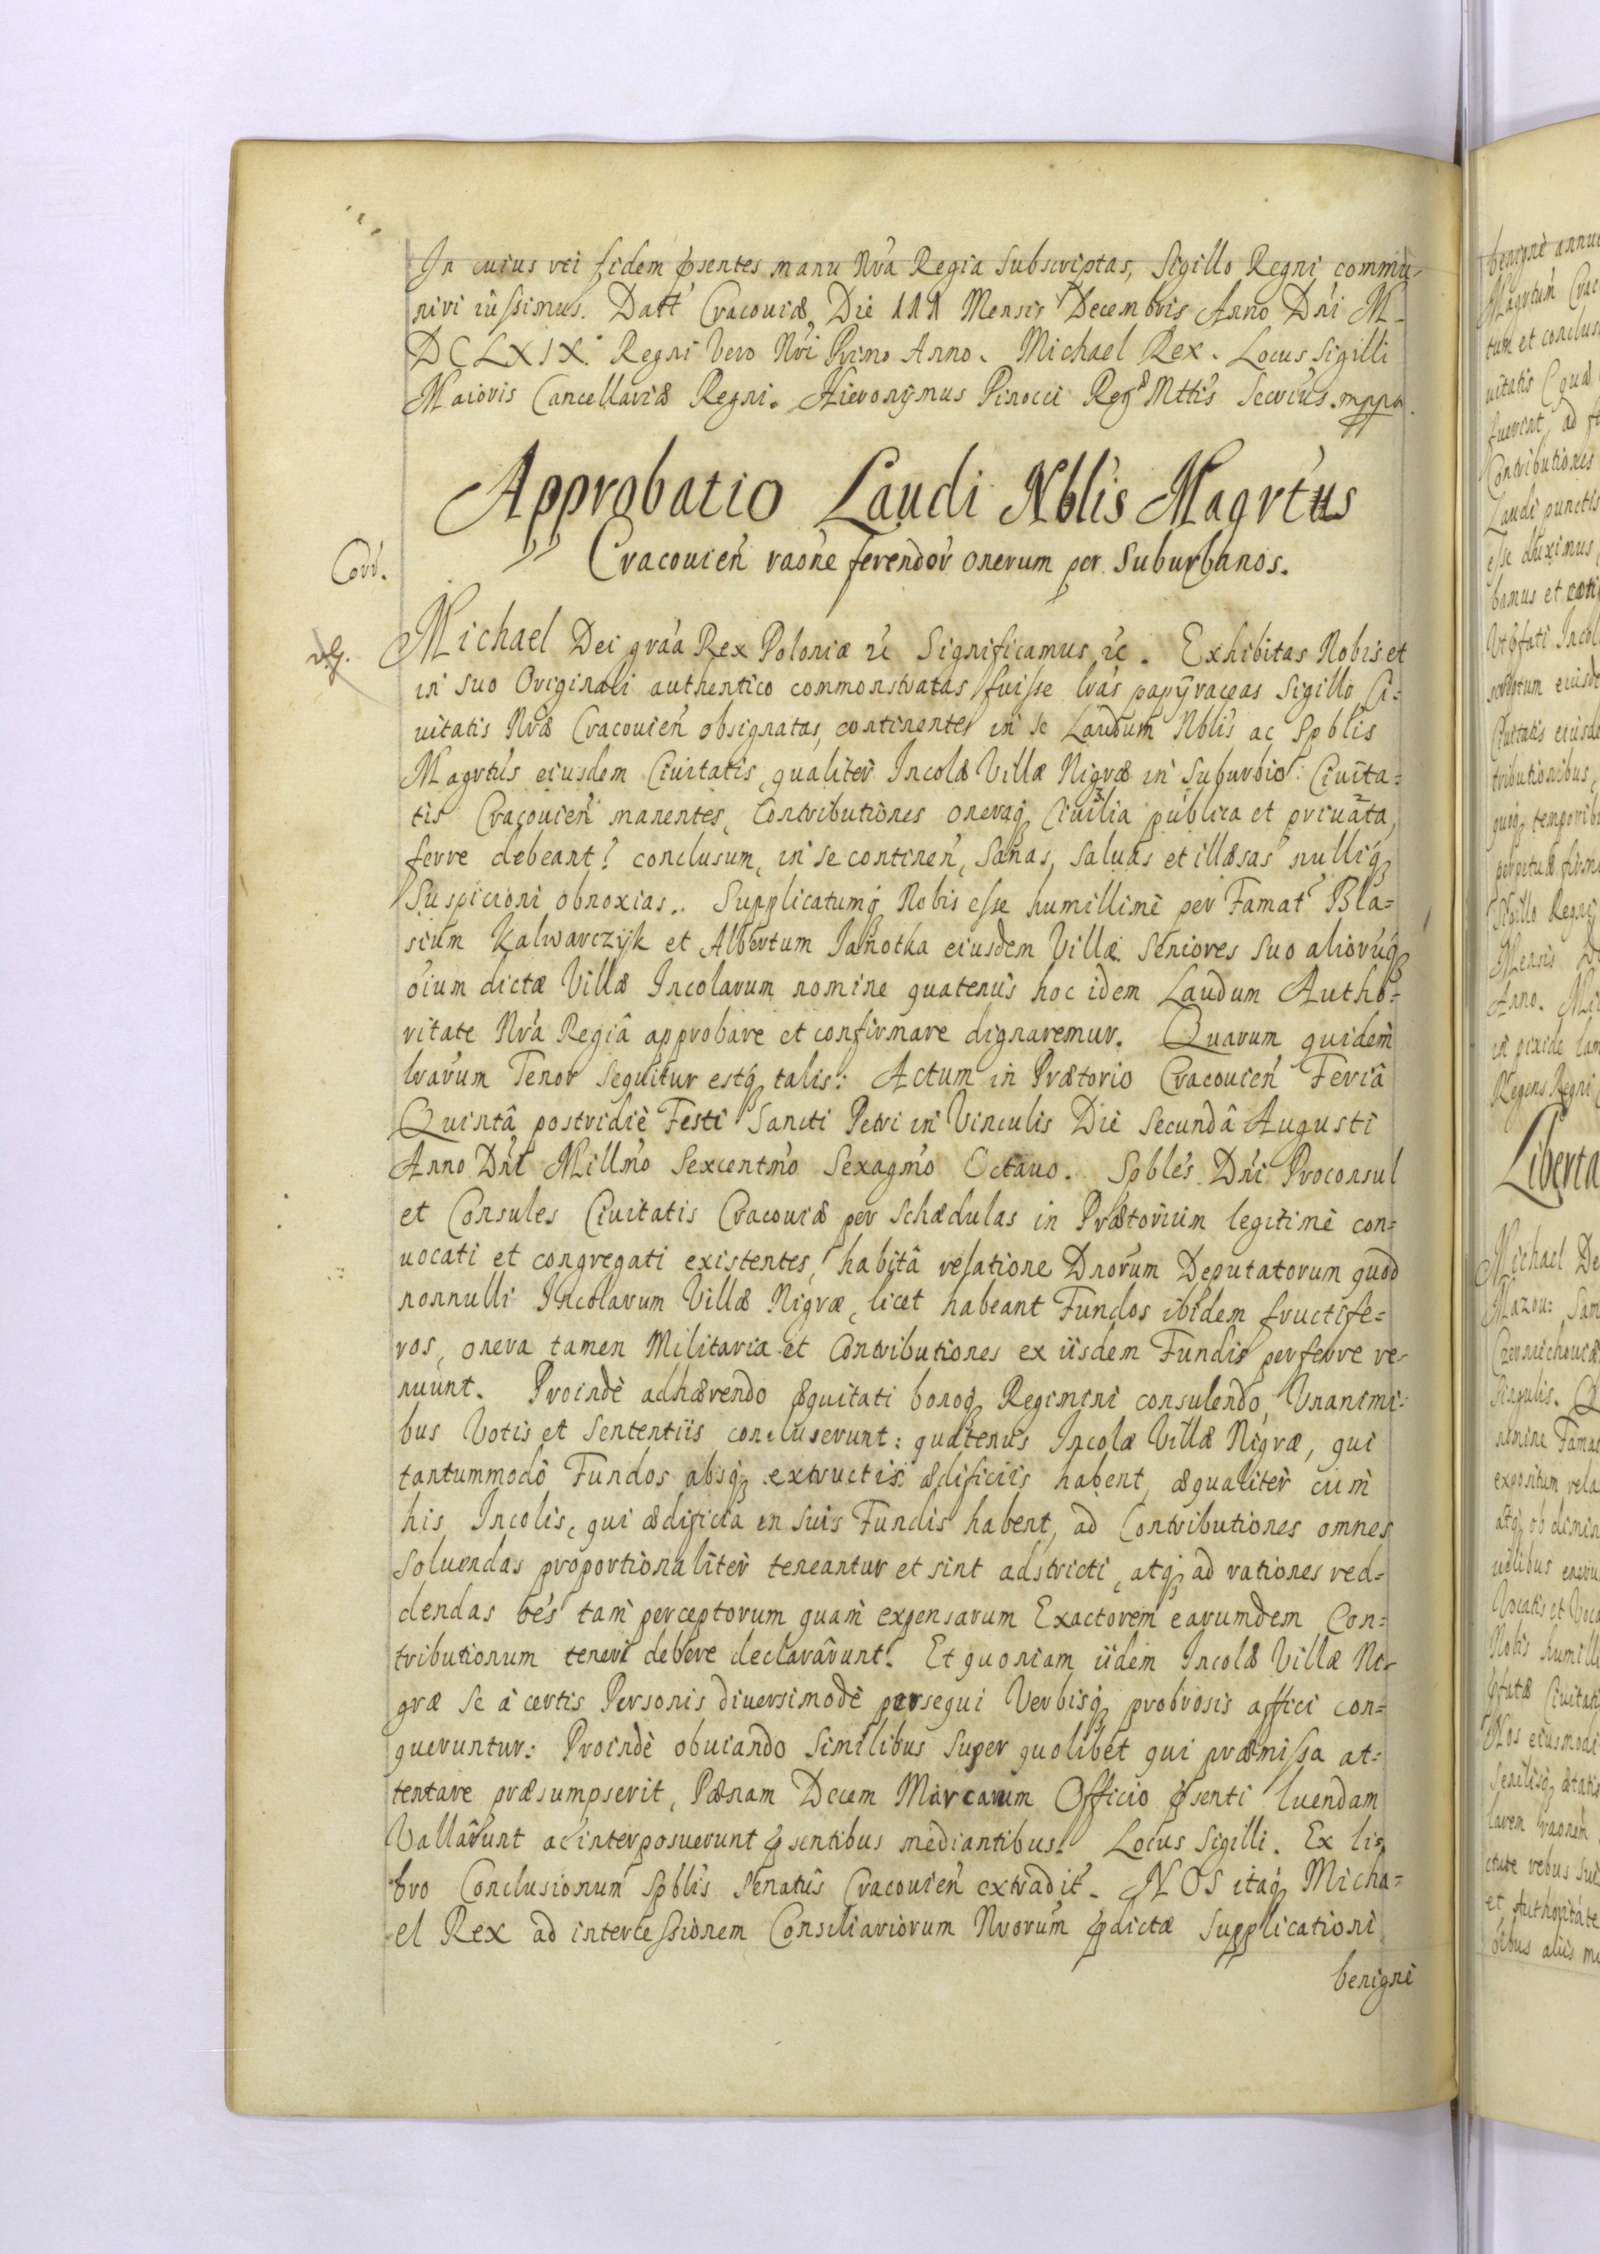 In cuius rei fidem pñsentes manu Nrã Regia Subscriptas, Sigillo Regni commu-
niri iussimus. Datt Cracouiæ Die III Mensis Decembris Anno Dñi M-
DCLXIX. Regni Vero Nrĩ Primo Anno. Michael Rex. Locus Sigilli
Maioris Cancellariæ Regni. Hieronÿmus Pinocci Regæ Mttis Secrius. mppa.
Approbatio Laudi Nblis Magrtus
Cracouien raõne ferendor onerum per Suburbanos.
Corr.
Michael Dei gráa Rex Poloniæ &c Significamus &c. Exhibitas Nobis et
in suo Originali authentico commonstratas fuisse lras papÿraceas Sigillo Ci-
uitatis Nræ Cracouien obsignatas, continentes in se Laudum Nblis ac Spblis
Magrtus eiusdem Ciuitatis, qualiter Incolæ Villæ Nigræ in Suburbio Ciuita-
tis Cracouien manentes, Contributiones oneraq3 Ciuilia publica et priuata,
ferre debeant? conclusum, in se continen, Sanas, Saluas et illæsas nulliq3
Suspicioni obnoxias. Supplicatumq3 Nobis esse humillimè per Famat Bla-
sium Kalwarczÿk et Albertum Janotka eiusdem Villæ Seniores Suo alioruq3
oium dictæ Villæ Incolarum nomine quatenus hoc idem Laudum Autho-
ritate Nrã Regiâ approbare et confirmare dignaremur. Quarum quidem
lrarum Tenor Sequitur estq3 talis: Actum in Prætorio Cracouien Feriâ
Quintâ postridiè Festi Sancti Petri in Vinculis Die Secundâ Augusti
Anno Dñi Millmo Sexcentmo Sexagmo Octauo. Spbles Dñi Proconsul
et Consules Ciuitatis Cracouiæ per Schædulas in Prætorium legitimè con-
uocati et congregati existentes, habitâ relatione Dnorum Deputatorum quod
nonnulli Incolarum Villæ Nigræ, licet habeant Fundos ibidem fructife-
ros, onera tamen Militaria et Contributiones ex iisdem Fundis perferre re-
nuunt. Proindè adhærendo æquitati bonoq3 Regimini consulendo, Vnanimi-
bus Votis et Sententiis concluserunt: quatenus Incolæ Villæ Nigræ, qui
tantummodò Fundos absq3 extructis ædificiis habent, æqualiter cum
his Incolis, qui ædificia in Suis Fundis habent, ad Contributiones omnes
Soluendas proportionaliter teneantur et sint adstricti, atq3 ad rationes red-
dendas tam perceptorum quam expensarum Exactorem earumdem Con-
tributionum teneri debere declarârunt. Et quoniam iidem Incolæ Villæ Ni-
græ Se à certis Personis diuersimodè persequi Verbisq3 probrosis affici con-
queruntur: Proindè obuiando Similibus Super quolibet qui præmissa at-
tentare præsumpserit, Pænam Decem Marcarum Officio pñsenti luendam
Vallârunt ac interposuerunt pñsentibus mediantibus. Locus Sigilli. Ex li-
bro Conclusionum Spblis Senatûs Cracouien extradit. NOS itaq3 Micha-
el Rex ad intercessionem Consiliariorum Nrorum pdictæ Supplicationi
benignè